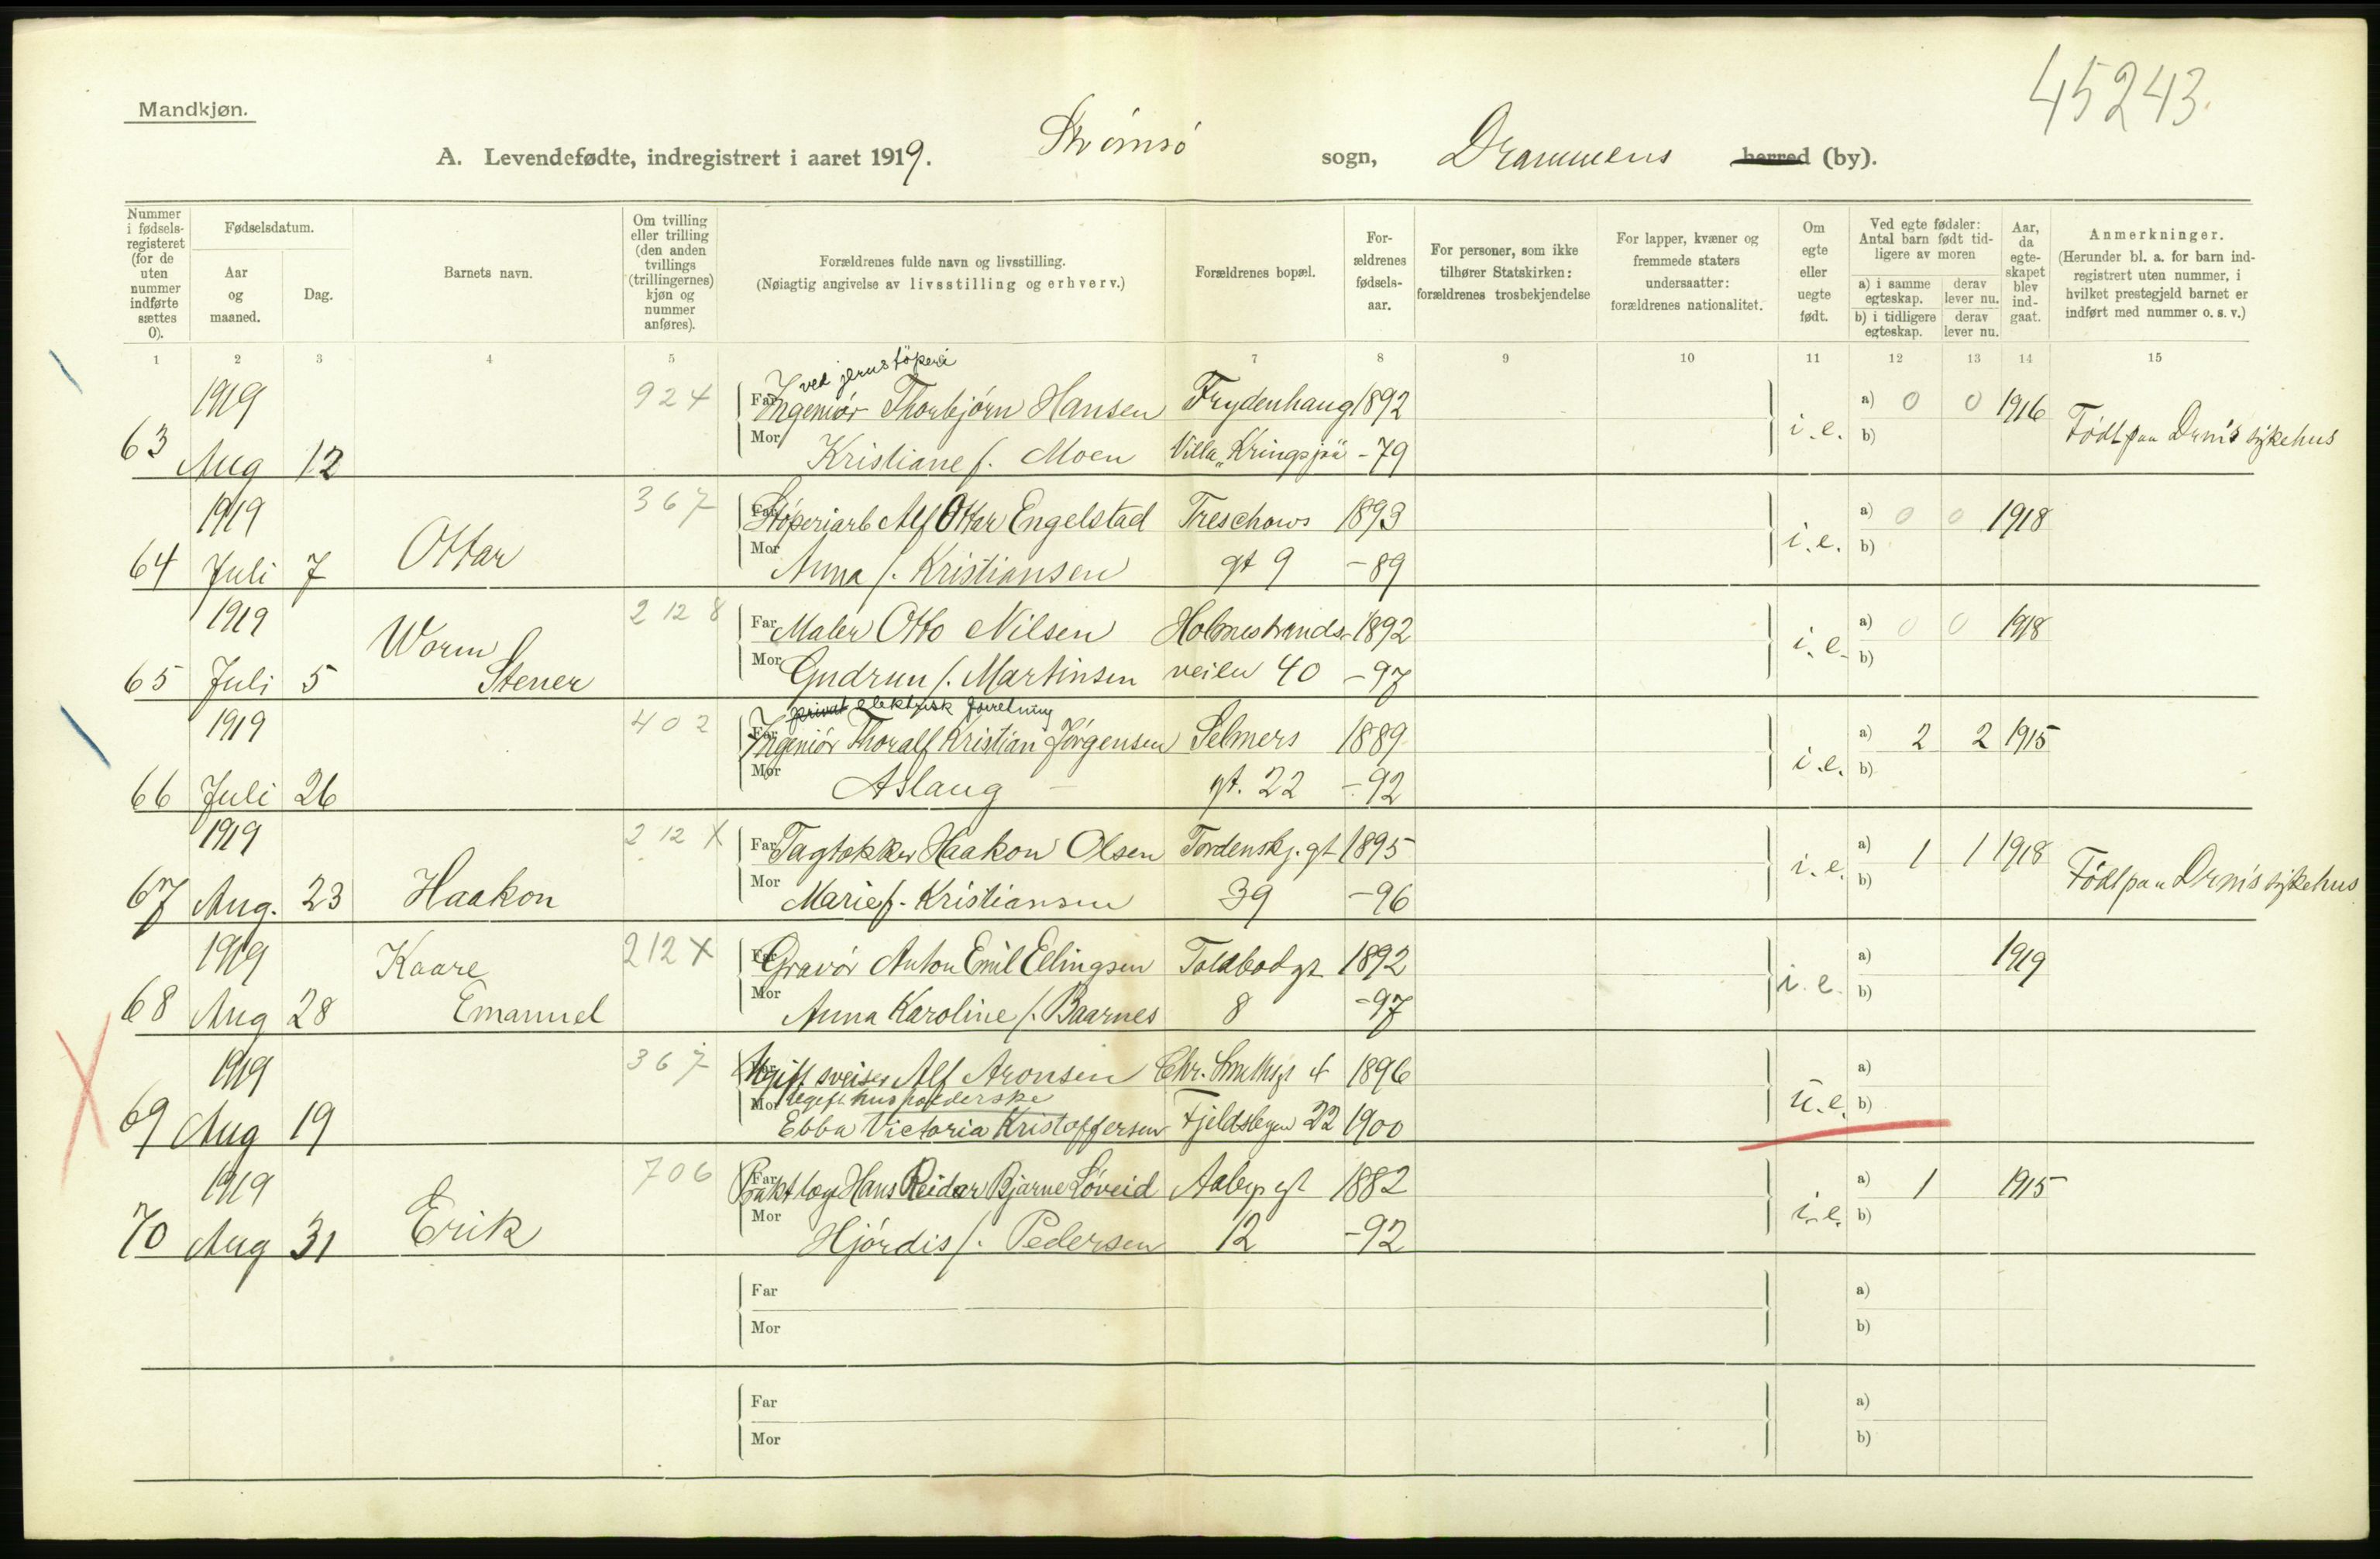 45243.
Mandkjøn.
A. Levendefødte, indregistrert i aaret 1919. Strømsø sogn, Drammens herred (by).
Nummer i fødsels-registeret (for de uten nummer indførte sættes 0).
Fødselsdatum.
Aar og maaned.
Dag.
Barnets navn.
Om tvilling eller trilling (den anden tvillings (trillingernes) kjøn og nummer anføres).
Forældrenes fulde navn og livsstilling.
(Nøiagtig angivelse av livsstilling og erhverv.)
Forældrenes bopæl.
For-ældrenes fødsels-aar.
For personer, som ikke tilhører Statskirken: forældrenes trosbekjendelse
For lapper, kvæner og fremmede staters undersaatter: forældrenes nationalitet.
Om egte eller uegte født.
Ved egte fødsler: Antal barn født tid-ligere av moren
a) i samme egteskap. derav lever nu.
b) i tidligere egteskap. derav lever nu.
Aar, da egte-skapet blev ind-gaat.
Anmerkninger.
(Herunder bl. a. for barn ind-registrert uten nummer, i hvilket prestegjeld barnet er indført med nummer o. s. v.)
1 2 3 4 5 7 8 9 10 11 12 13 14 15
ved jernstöperi
1919 924 Far Ingeniör Thorbjörn Hansen Frydenhaug 1892 a) 0 0 1916
63 Aug 12 Mor Kristiane f. Moen Villa „Kringsjå" -79 i.e. b) Födt paa Drm's sykehus
1919 367 Far Stöperiarb Alf Ottar Engelstad Treschows 1893 a) 0 0 1918
64 Juli 7 Ottar Mor Anna f. Kristiansen gt 9 -89 i.e. b)
1919 Worm 2128 Far Maler Otto Nilsen Holmestrands- 1892 a) 0 0 1918
65 Juli 5 Stener Mor Gudrun f. Martinsen veien 40 -97 i.e. b)
privat elektrisk forretning
1919 402 Far Ingeniör Thoralf Kristian Jörgensen Selmers 1889 a) 2 2 1915
66 Juli 26 Mor Aslaug – gt. 22 -92 i.e. b)
1919 212X Far Tagtækker Haakon Olsen Tordenskj. gt 1895 a) 1 1 1918
67 Aug. 23 Haakon Mor Marie f. Kristiansen 39 -96 i.e. b) Födt paa Drm's sykehus
1919 Kaare 212X Far Gravör Anton Emil Ellingsen Toldbodgt 1892 a) 1919
68 Aug 28 Emanuel Mor Anna Karoline f. Baarnes 8 -97 i.e. b)
1919 367 Far Ugift sveiser Alf Aronsen Chr. Smithsgt 4 1896 a)
Mor Ugift husholderske
69 Aug 19 Ebba Victoria Kristoffersen Fjeldsbyen 22 1900 u.e. b)
1919 706 Far Prakt læge Hans Reidar Bjarne Löveid 1882 a) 1 1915
70 Aug 31 Erik Mor Hjördis f. Pedersen 12 -92 i.e. b)
Far a)
Mor b)
Far a)
Mor b)